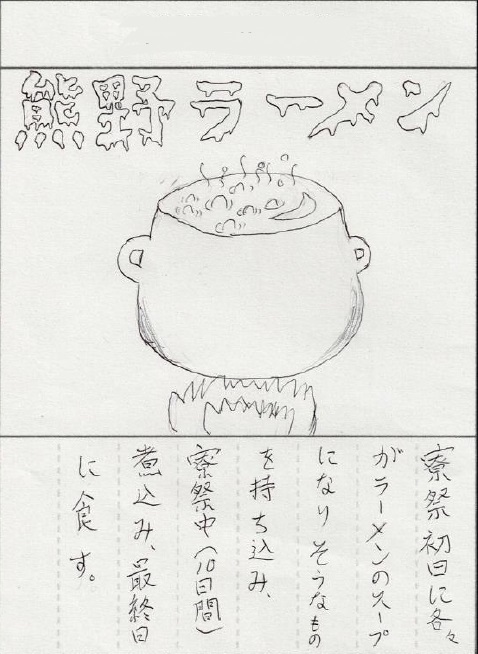 熊野ラーメン
寮祭初日に各々
がラーメンのスープ
になりそうなもの
を持ち込み、
寮祭中(10日間)
煮込み、最終日
に食す。